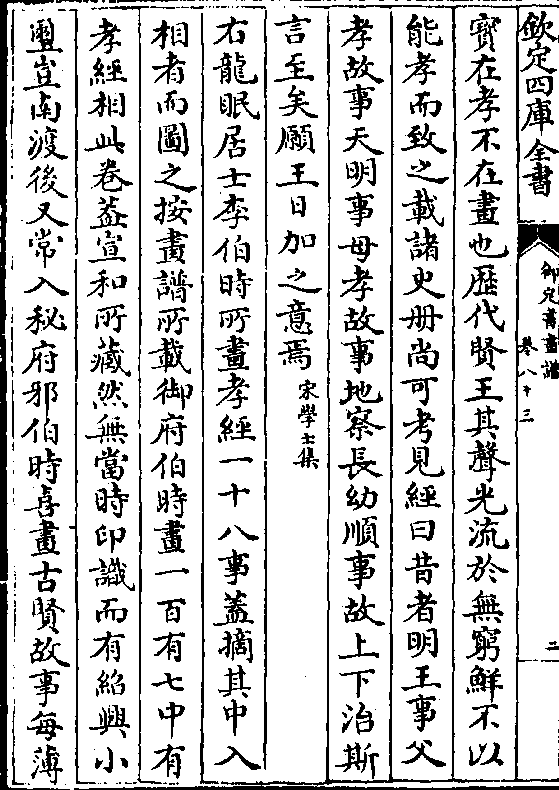 欽定四庫全書
御定書畫譜
卷八十三
二
寳在孝不在畫也歴代賢王其聲光流於無窮鮮不以
能孝而致之載諸史册尚可考見經曰昔者明王事父
孝故事天明事母孝故事地察長幼順事故上下治斯
言至矣願王日加之意焉宋學士集
右龍眠居士李伯時所畫孝經一十八事蓋摘其中入
相者而圖之按畫譜所載御府伯時畫一百有七中有
孝經相此卷蓋宣和所藏然無當時印識而有紹興小
璽豈南渡後又常入秘府邪伯時喜畫古賢故事每薄